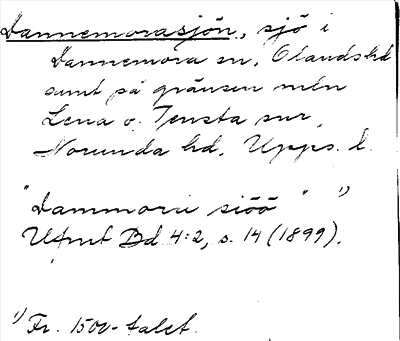 Dannemorasjön, sjö i
Dannemora sn, Olands hd
samt på gränsen mln
Lena o. Tensta snr,
Norunda hd, Upps. l.
"Dammora siöö" 1)
Ufmt Bd 4:2, s. 14 (1899).
1) Fr. 1500-talet.